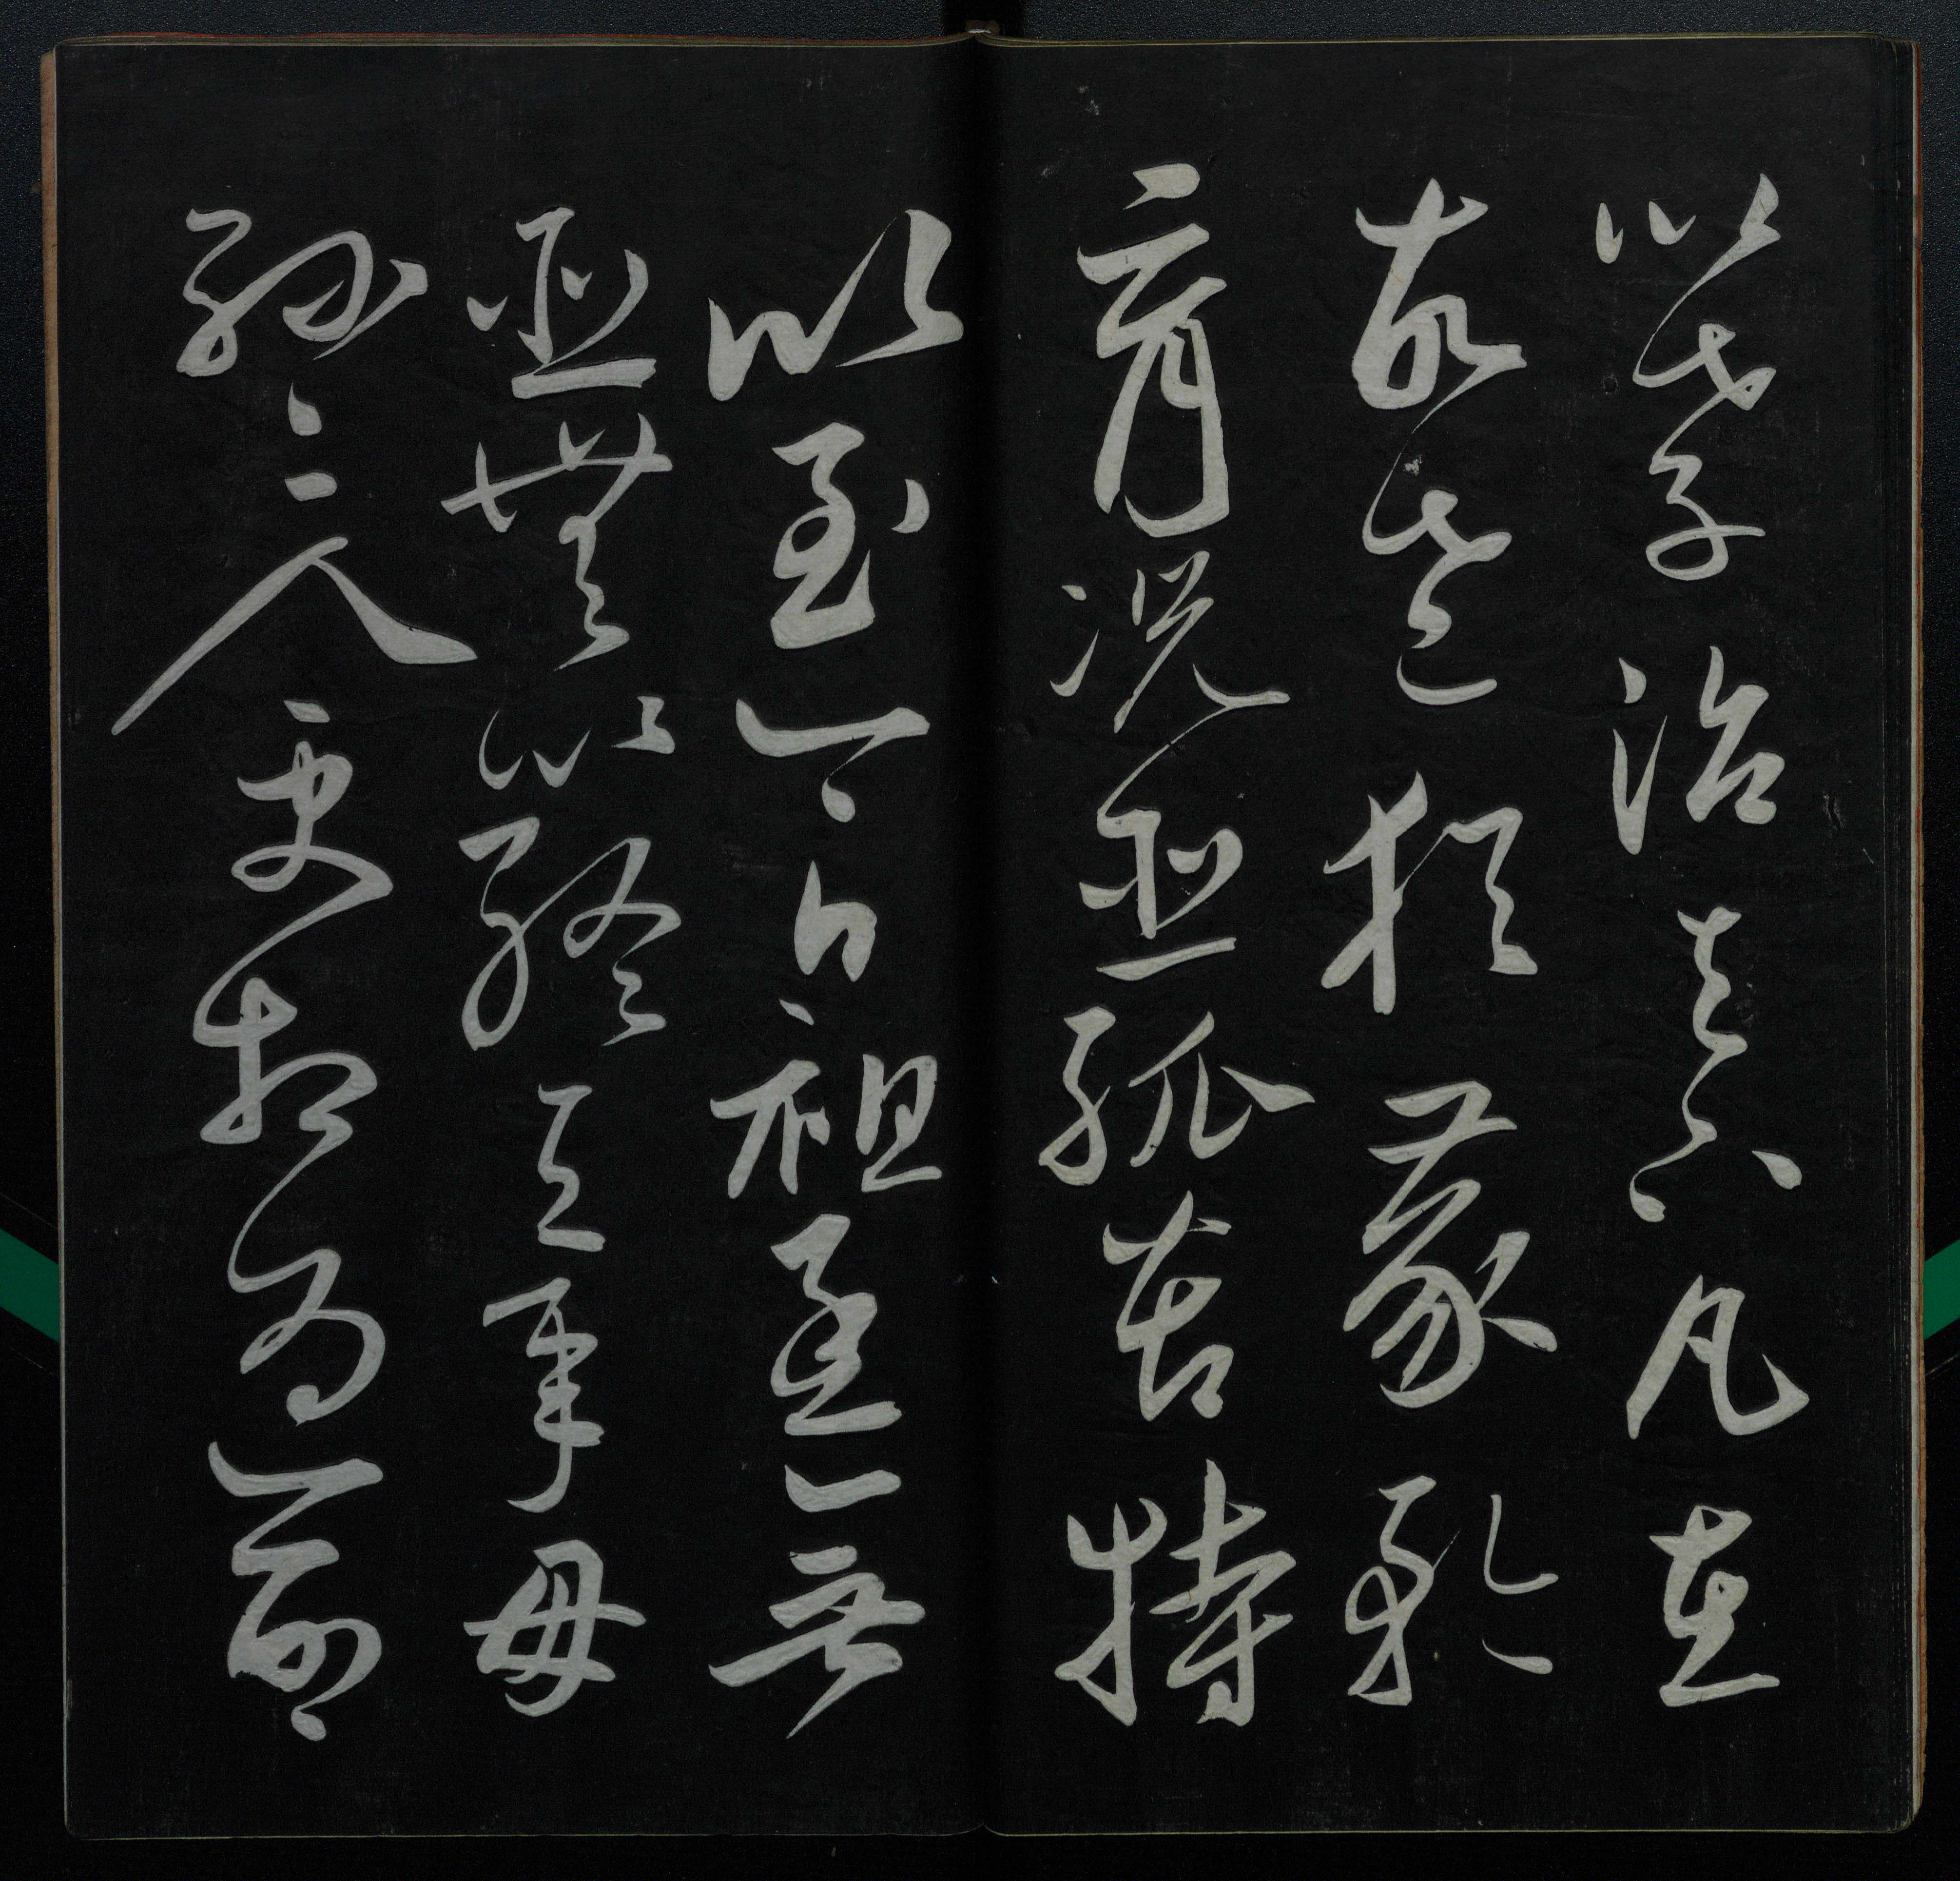 以孝治天下凡在
故老猶蒙矜
育況臣孤苦特
以至今日祖母無
臣無以終餘年母
孫二人更相為命